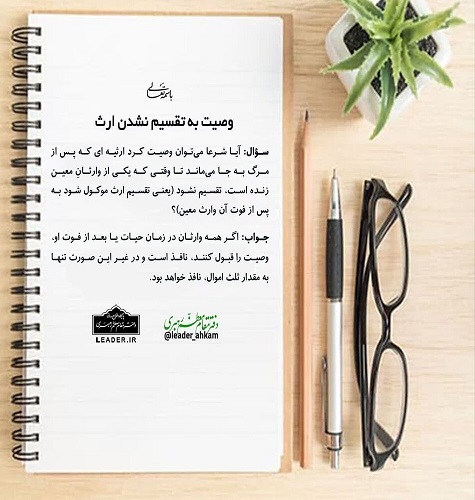 باسمه تعالی
وصیت به تقسیم نشدن ارث
سؤال: آیا شرعا می‌توان وصیت کرد ارثیه ای که پس از
مرگ به جا می‌ماند تا وقتی که یکی از وارثان معین
زنده است، تقسیم نشود (یعنی تقسیم ارث موکول شود به
پس از فوت آن وارث معین)؟
جواب: اگر همه وارثان در زمان حیات یا بعد از فوت او،
وصیت را قبول کنند، نافذ است و در غیر این صورت تنها
به مقدار ثلث اموال، نافذ خواهد بود.
دفتر مقام معظم رهبری
@leader_ahkam
LEADER.IR